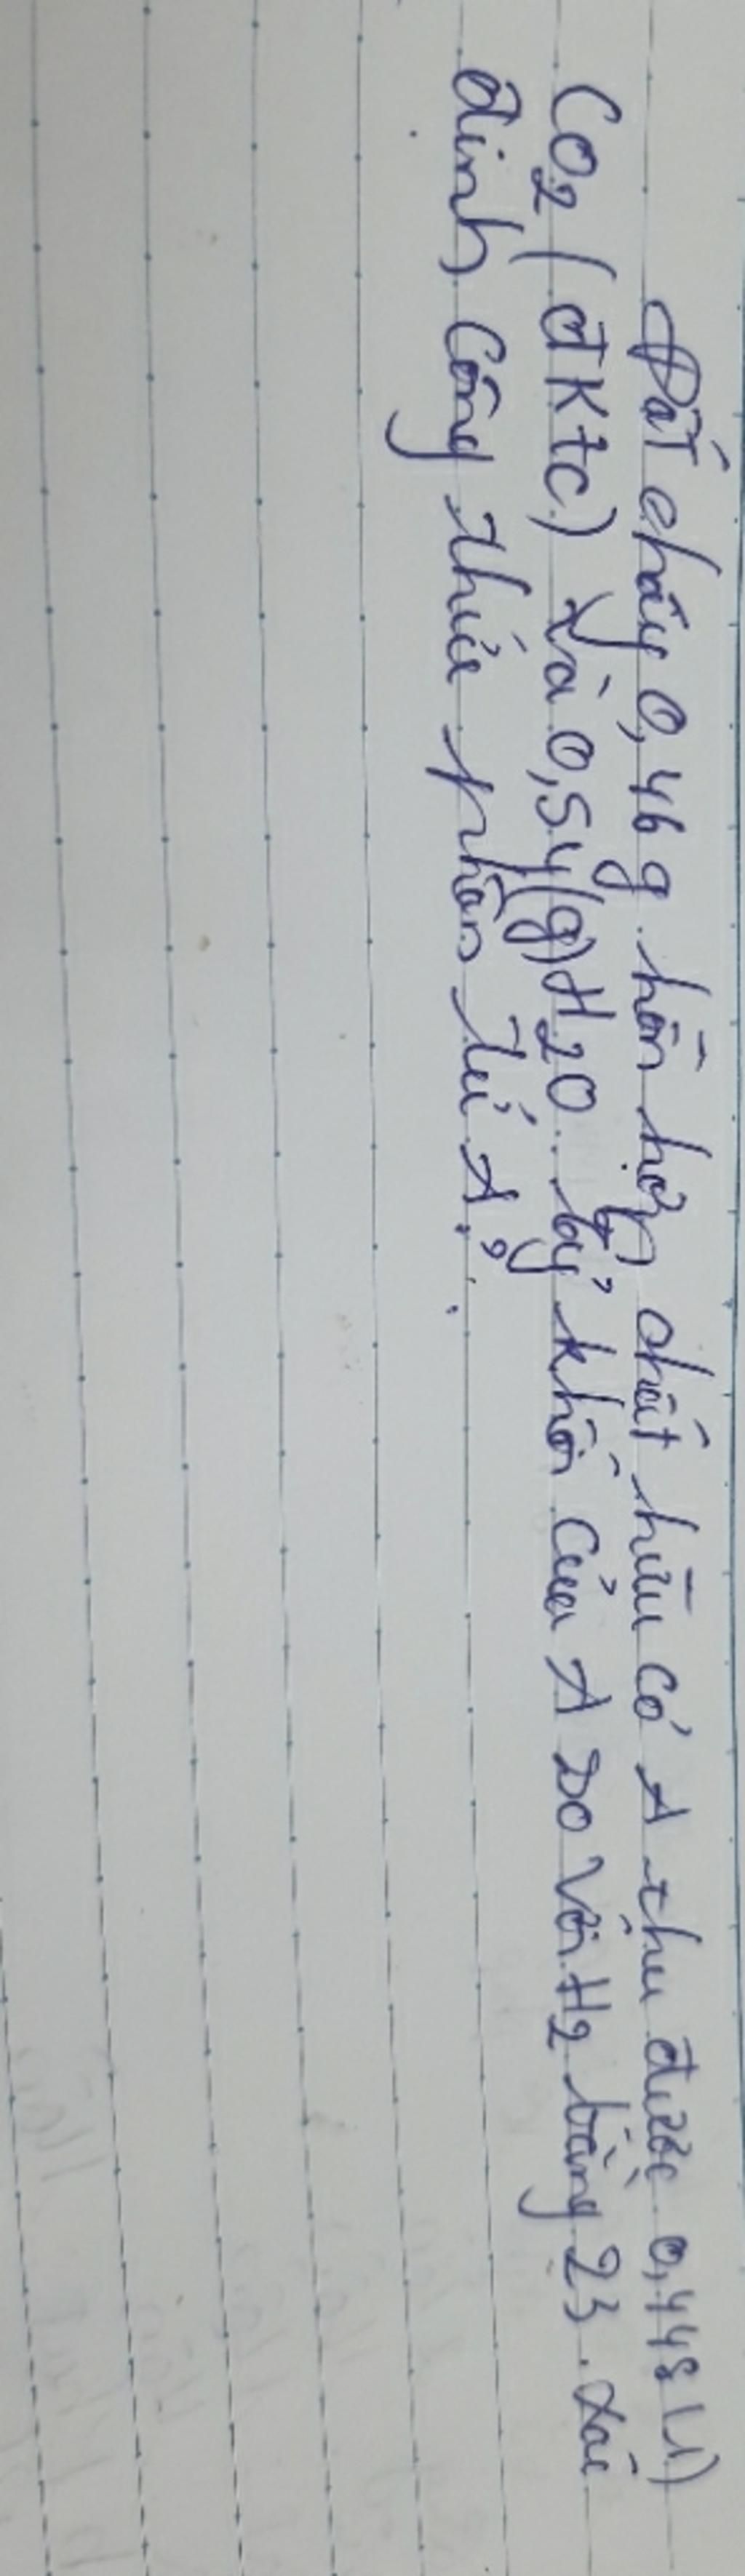 Đốt cháy 0,46 g hỗn hợp chất hữu cơ A thu được 0,448 (l)
CO2 (đktc) và 0,54 (g) H2O. tỷ khối của A so với H2 bằng 23. Xác
định công thức phân tử A?